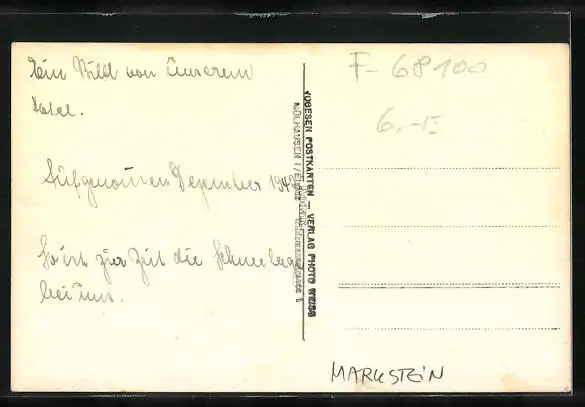 Ein Bild von unserem
Hotel.
Aufgenommen Dezember 194
So ist zur Zeit die Schneelage
bei uns.
JUGESEN POSTKARTEN — VERLAG PHOTO WEISS
MÜLHAUSEN i/Els.
F-68100
6.-E
MARKSTEIN